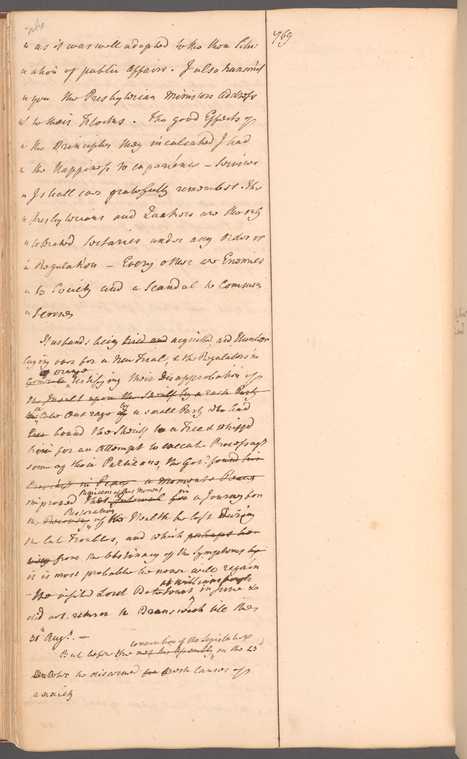 769
" as it was well adapted to the then Situ-
" ation of public Affairs. I also transmit
" you the Presbyterian Ministers address
" to their Flocks. The good Effects of
" the Principles they inculcated I had
" the Happiness to experience – Services
" I shall ever gratefully remember. The
" Presbyterians and Quakers are the only
" tolerated Sectaries under any Order or
" Regulation – Every other are Enemies
" to Society and a Scandal to Common
" Sense
Husbands being tried and acquitted and Hunter
lying over for a New Trial, & the Regulators in
Orange
testifying their Disapprobation of
the Insult upon the Sheriff by a rash Party
the late Outrage by a small Party who had
bound the Sheriff to a Tree & whipped
him for an Attempt to execute Process agt
some of their Partizans, the Govr found him
himself in Peace a moments Peace
improved this Interval for in a Journey for
Restoration
the Recovery of the Health he lost during
the late Troubles, and which perhaps he
from the Obstinacy of the Symptoms
it is most probable he never will regain
at Williamsburgh
He visited Lord Botetourt in June &
did not return to Brunswick till the
31st Augt. –
convention of the Legislature
But before the met his Assembly on the 23
he discerned fresh Causes of
anxiety